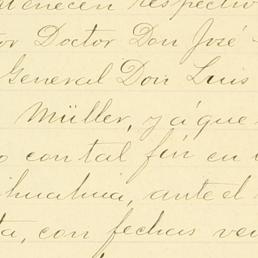 tenecen respectiv
or Doctor Don José
General Don Luis
Müller, y á que
o con tal fin en
ihuahua, ante el
ta, con fechas ve